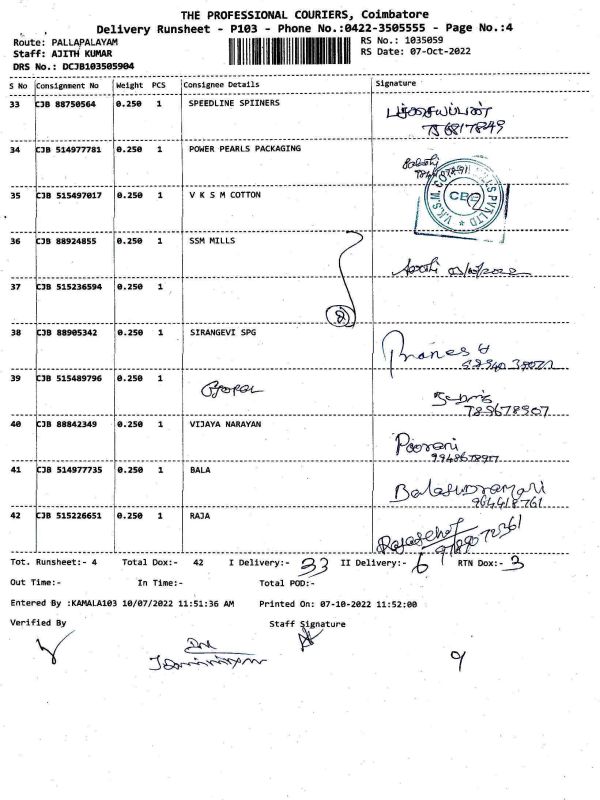 THE PROFESSIONAL COURIERS, Coimbatore
Delivery Runsheet - P103 - Phone No.:0422-3505555 - Page No.:4
Route: PALLAPALAYAM RS No.: 1035059
Staff: AJITH KUMAR RS Date: 07-Oct-2022
DRS No.: DCJB103505904
S No Consignment No Weight PCS Consignee Details Signature
33 CJB 88750564 0.250 1 SPEEDLINE SPIINERS
34 CJB 514977781 0.250 1 POWER PEARLS PACKAGING
35 CJB 515497017 0.250 1 V K S M COTTON
CBE
36 CJB 88924855 0.250 1 SSM MILLS
37 CJB 515236594 0.250 1
2
38 CJB 88905342 0.250 1 SIRANGEVI SPG
39 CJB 515489796 0.250 1 Gopal
789678907
40 CJB 88842349 0.250 1 VIJAYA NARAYAN Poorani
41 CJB 514977735 0.250 1 BALA
42 CJB 515226651 0.250 1 RAJA
Tot. Runsheet:- 4 Total Dox:- 42 I Delivery:- 33 II Delivery:- 6 RTN Dox:- 3
Out Time:- In Time:- Total POD:-
Entered By :KAMALA103 10/07/2022 11:51:36 AM Printed On: 07-10-2022 11:52:00
Verified By Staff Signature